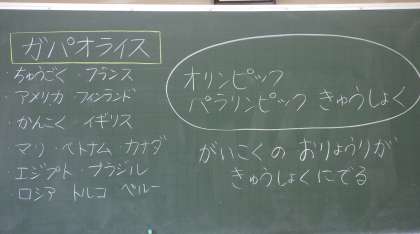 ガパオライス
・ちゅうごく ・フランス
・アメリカ フィンランド
・かんこく ・イギリス
マリ ・ベトナム ・カナダ
・エジプト ・ブラジル
ロシア トルコ ペルー
オリンピック
パラリンピック きゅうしょく
がいこくの おりょうりが
きゅうしょくにでる